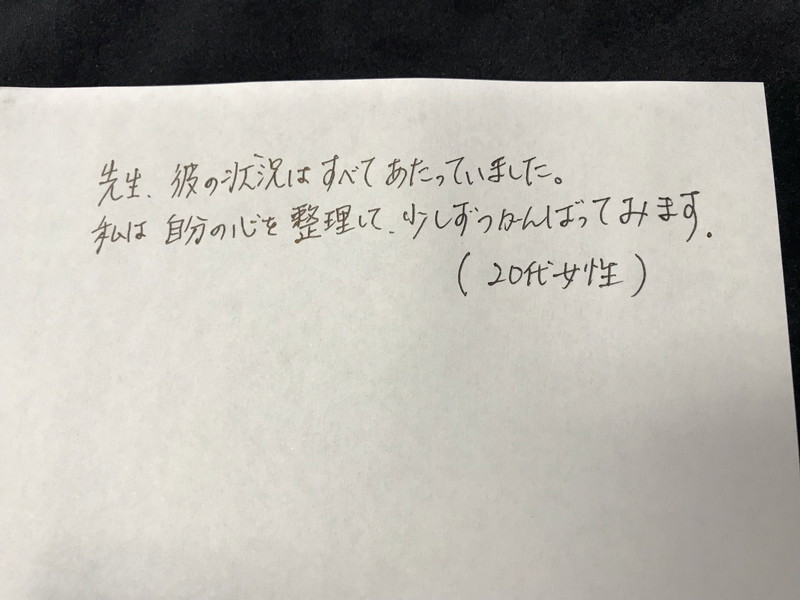 先生、彼の状況はすべてあたっていました。
私は自分の心を整理して、少しずつがんばってみます。
(20代女性)